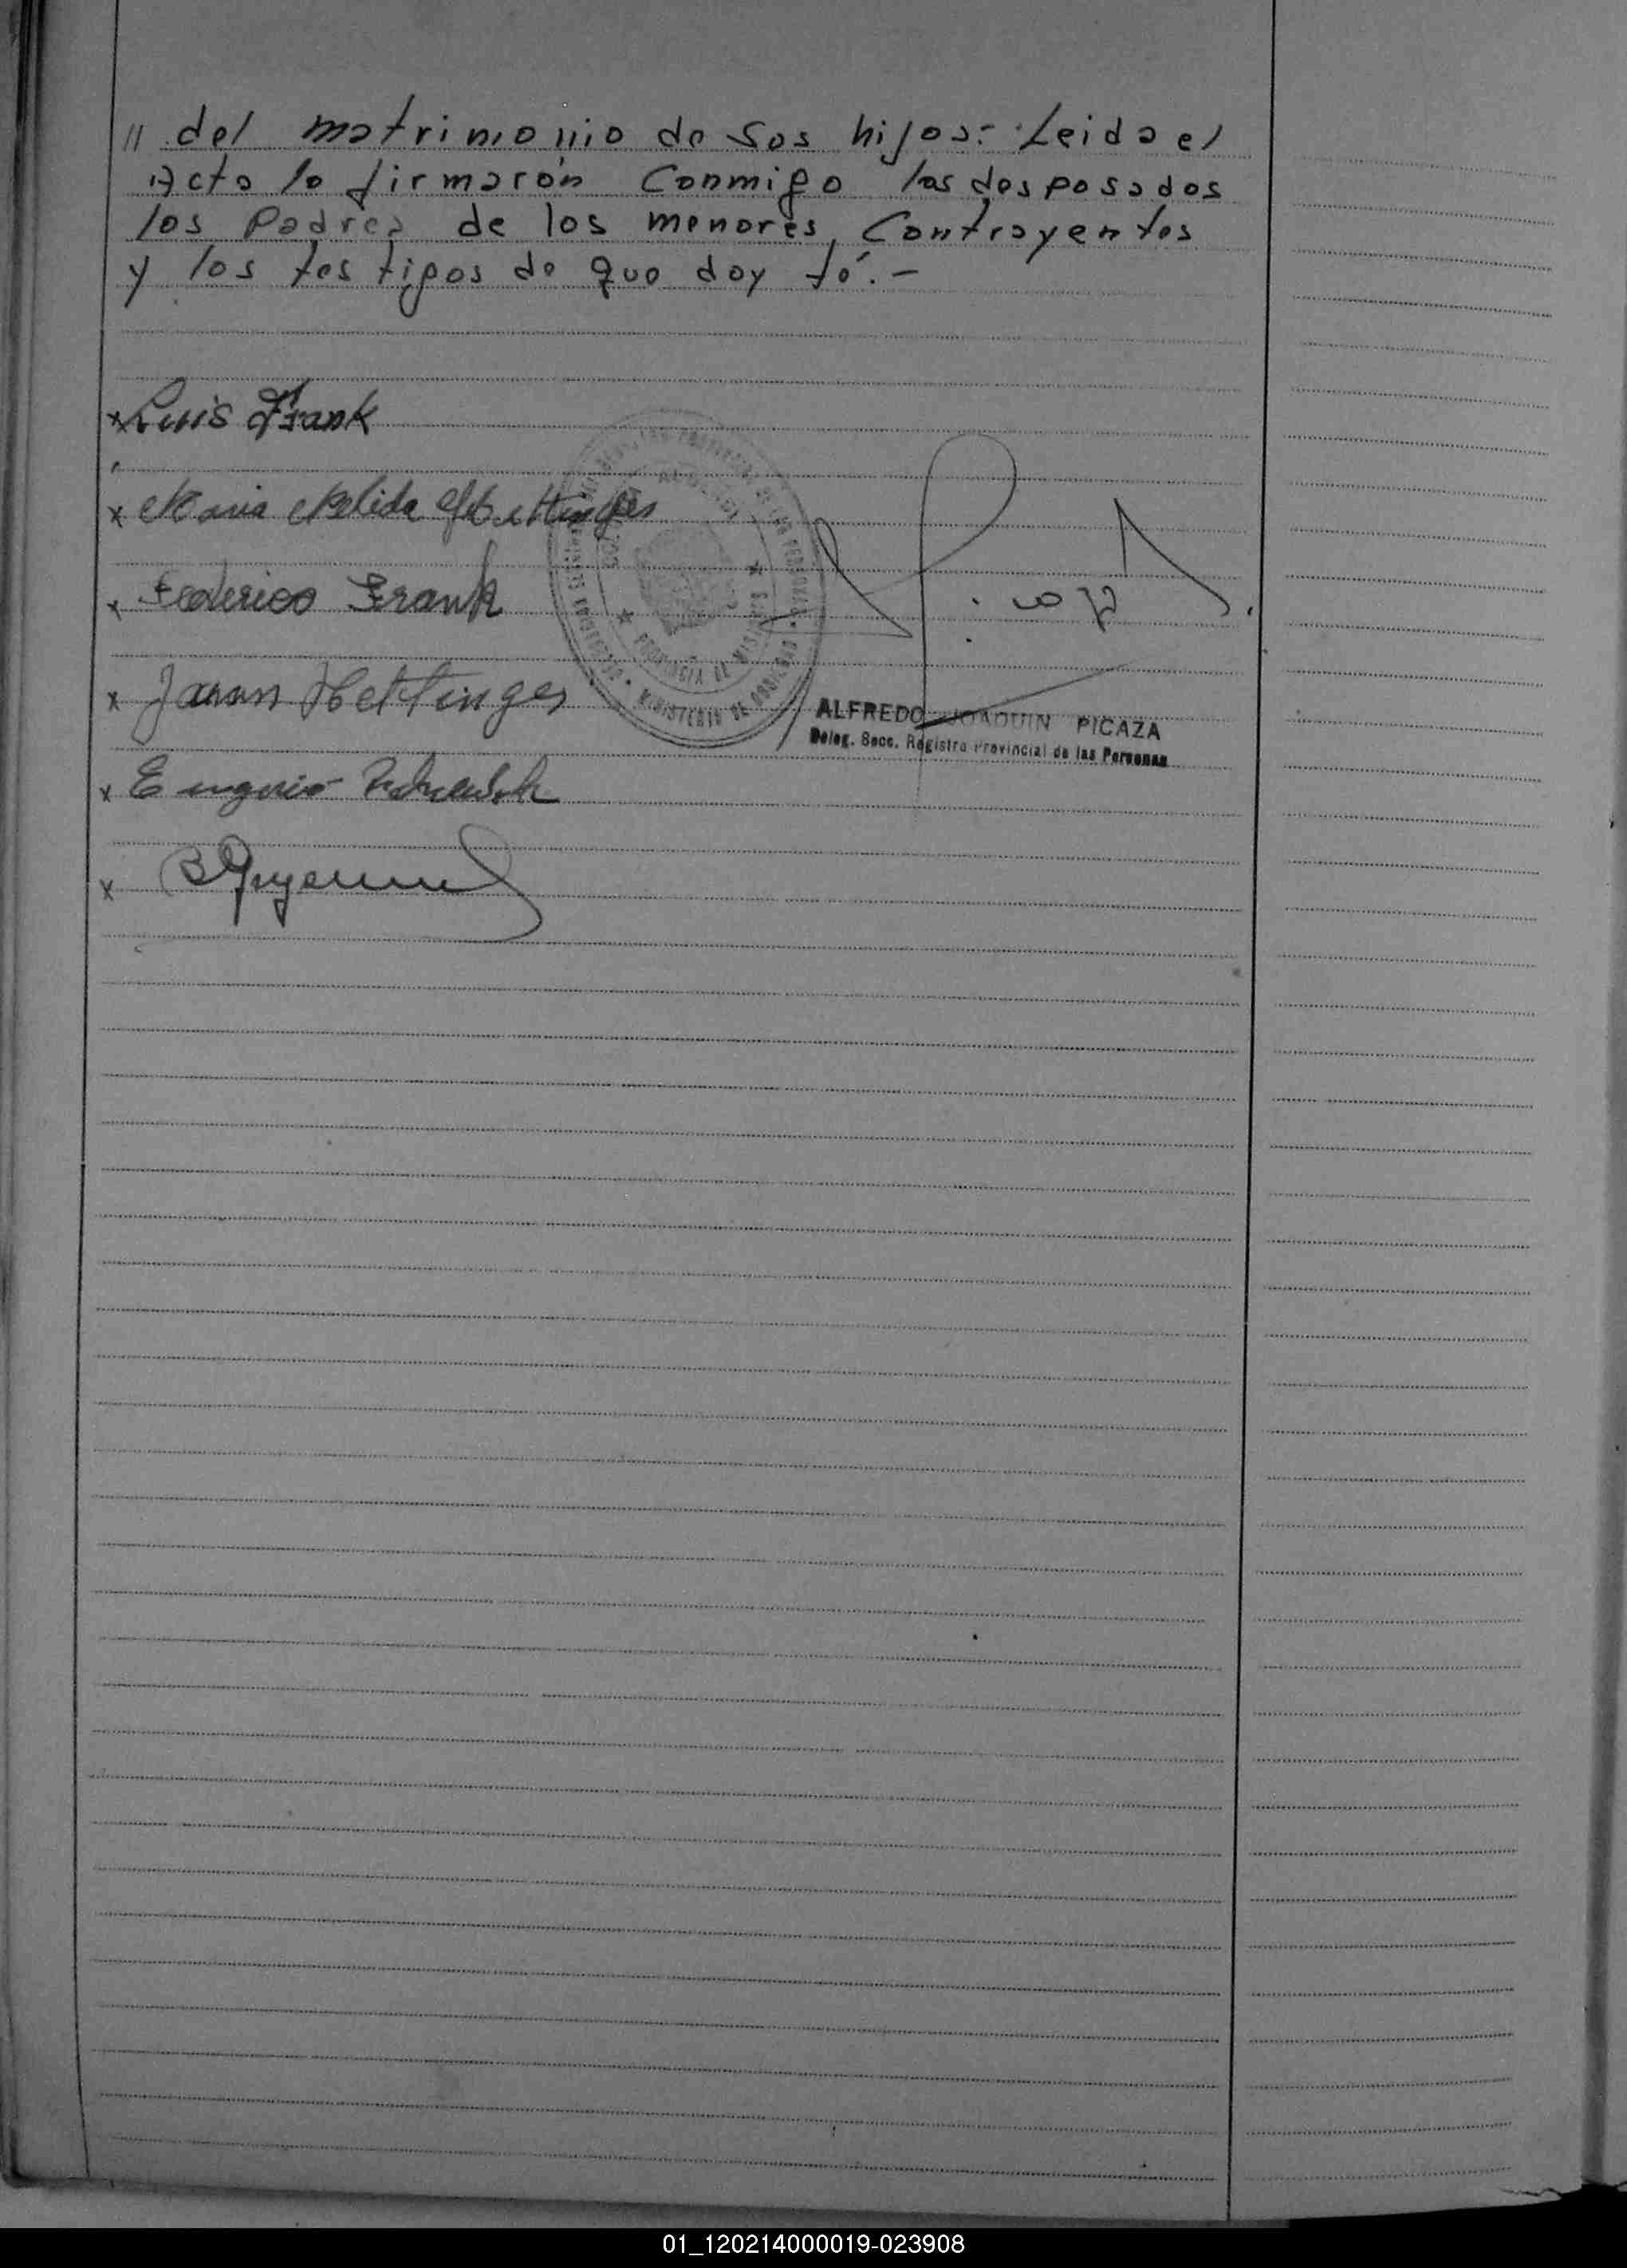 // del matrimonio de sus hijos.- Leida el
Acta la firmaron conmigo los desposados
los Padres de los menores, Contrayentes
y los testigos de que doy fé.-
x Luis Frank
x Maria Nelida Hettinger
x Federico Frank
x Juan Hettinger
ALFREDO JOAQUIN PICAZA
Deleg. Secc. Registro Provincial de las Personas
x Eugenio
x
01_120214000019-023908